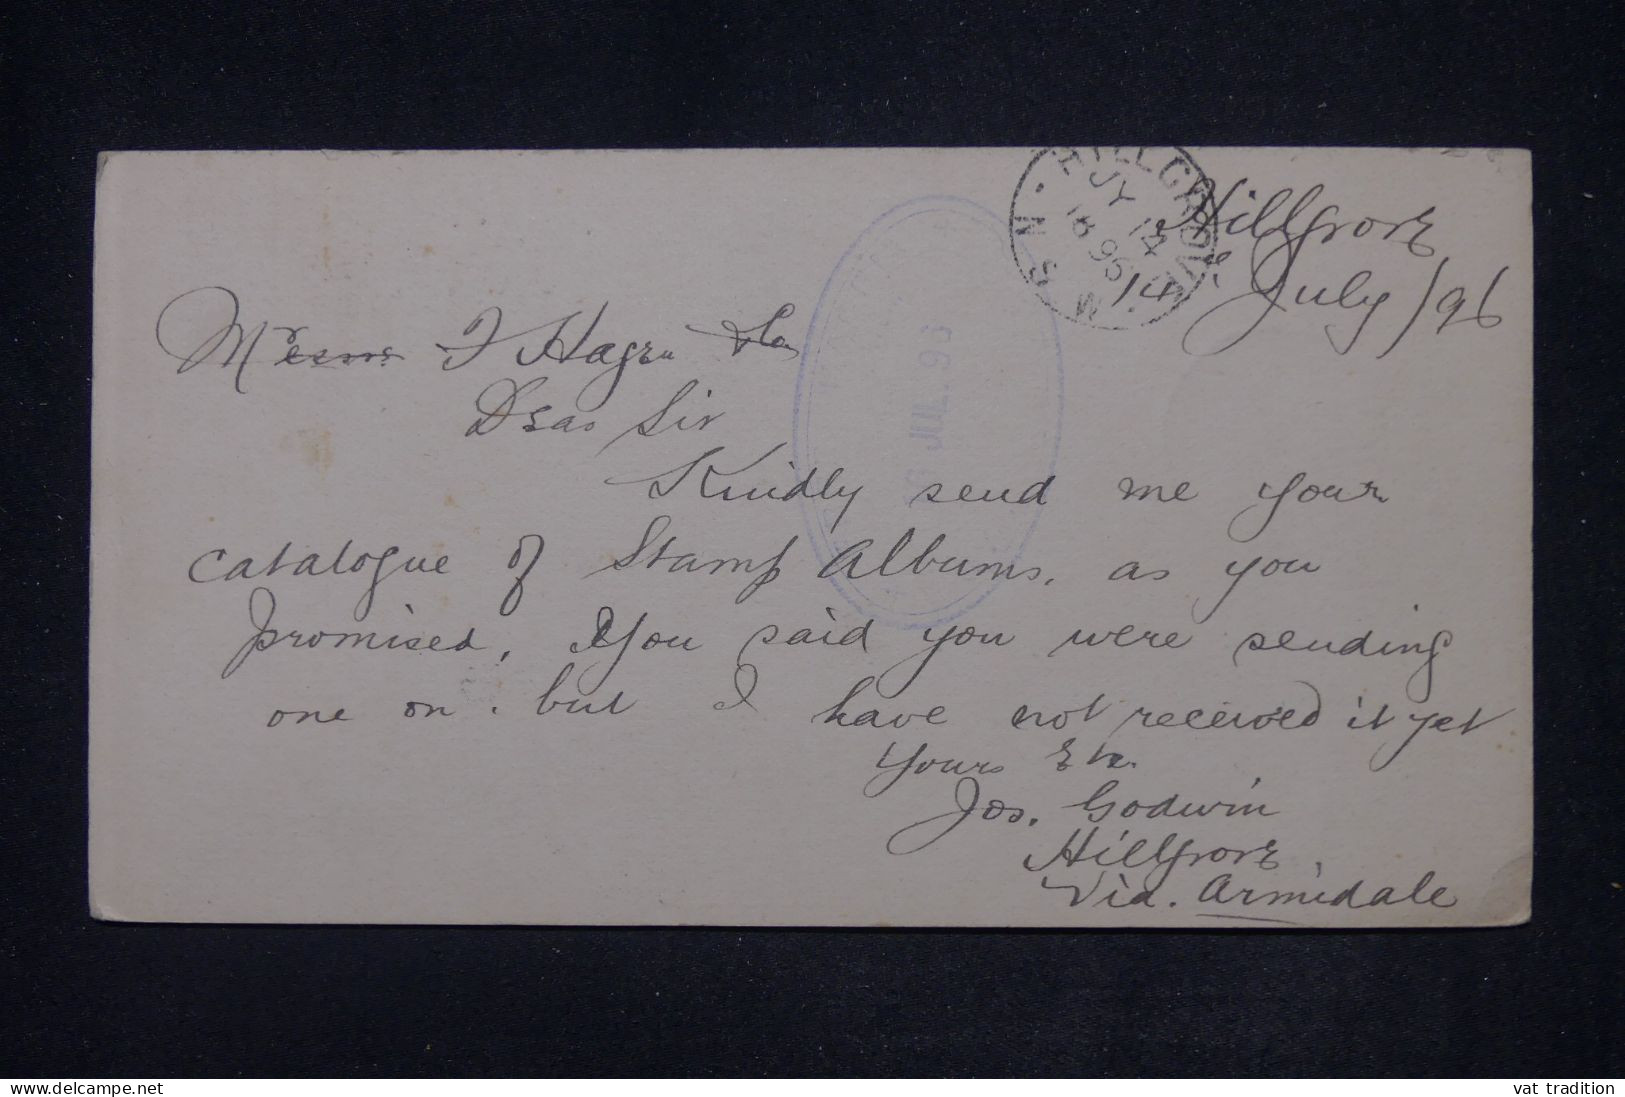 HILLGROVE
JY 14
18 96
N. S. W
Hillgrove
14 July / 96
Messrs F Hagen & Co
Dear Sir
16 JUL 96
Kindly send me your
catalogue of Stamp Albums. as you
promised, You said you were sending
one on. but I have not received it yet
Yours Etc.
Jos. Godwin
Hillgrove
Via. Armidale
delcampe.net
vat_tradition